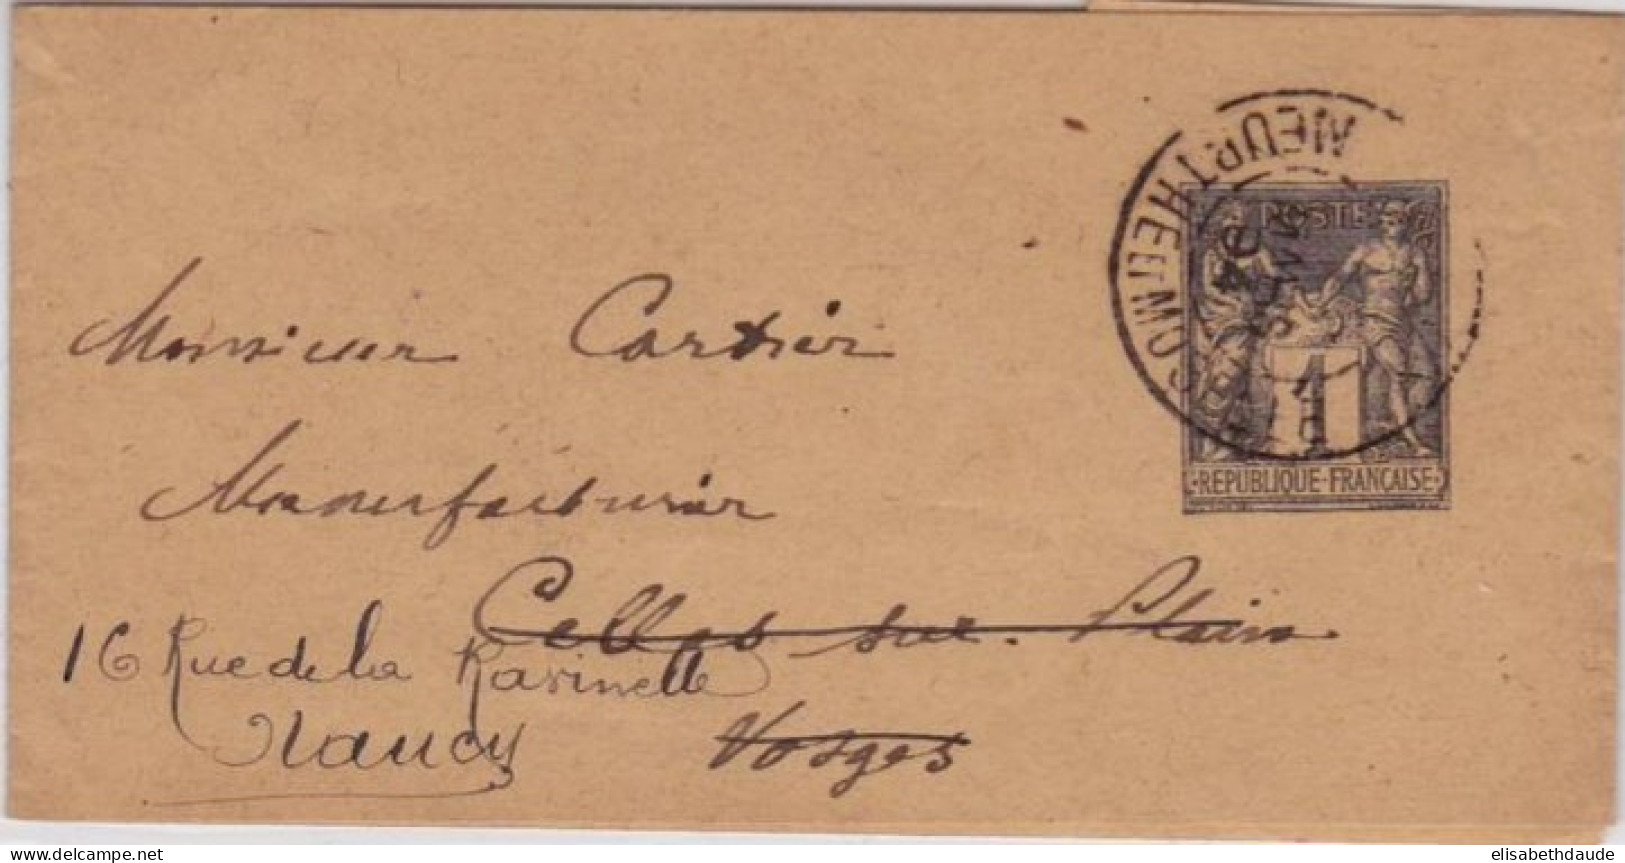 MEURTHE-ET-MOSELLE
POSTES
1
REPUBLIQUE-FRANÇAISE
Monsieur Cartier
Manufacturier
Celles sur Plain
16 Rue de la Ravinelle
Nancy
Vosges
www.delcampe.net
elisabethdaude